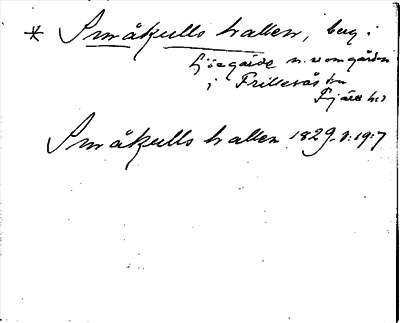 * Småkullshallen, beg. i
Gösegårde n. v om gården
i Frillesås sn
Fjäre hd
Småkullshallen 1829 1:19:7